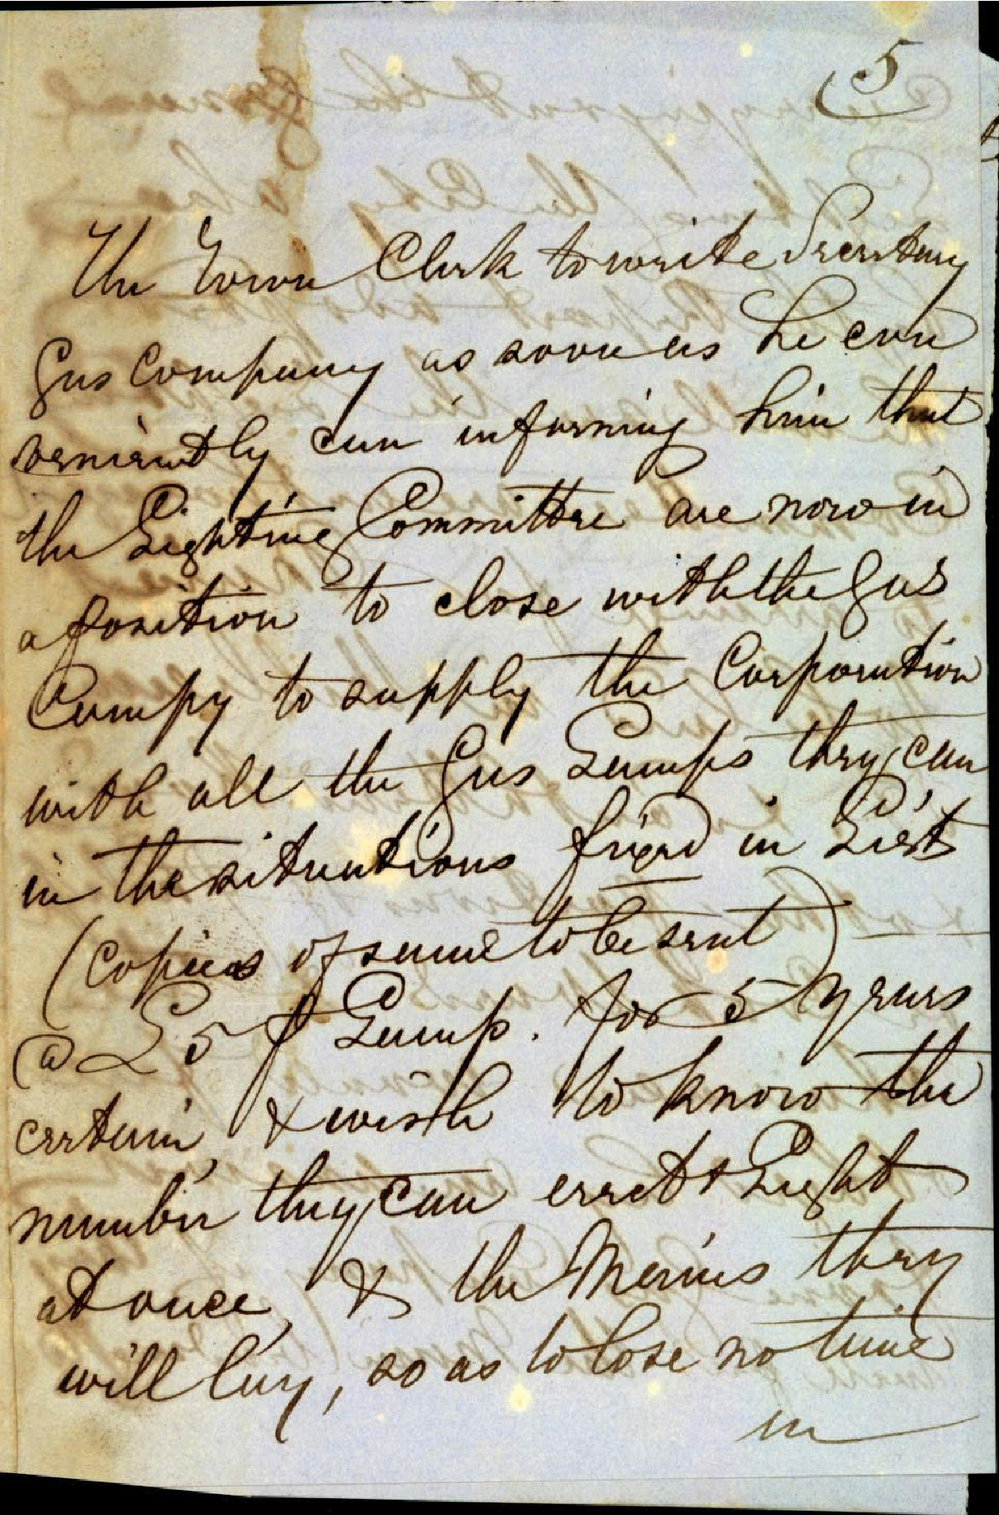 5
The Town Clerk to write Secretary
Gas Company as soon as he con
veniently can informing him that
the Lighting Committee are now in
a position to close with the Gas
Compy to supply the Corporation
with all the Gas Lamps they can
in the situations fixed in List
(copies of same to be sent)
@ £5 ⅌ Lamp. for 5 years
certain, & wish to know the
number they can erect & Light
at once, & the Mains they
will lay, so as to lose no time
in